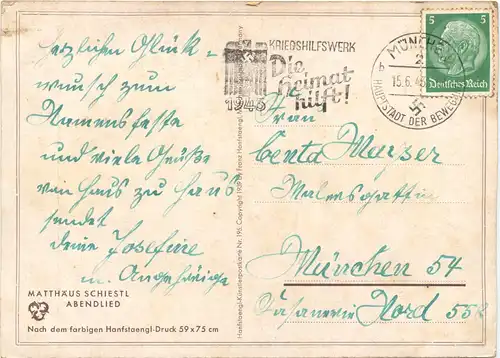 herzlichen Glück-
wunsch zum
Namensfeste
und viele Grüße
von Haus zu Haus
sendet
deine Josefine
u. Angehörige
MATTHÄUS SCHIESTL
ABENDLIED
Nach dem farbigen Hanfstaengl-Druck 59 x 75 cm
Hanfstaengl-Künstlerpostkarte Nr. 195 Copyright by Franz Hanfstaengl,
KRIEGSHILFSWERK
Die
Heimat
hilft!
1943
MÜNCHEN
2
b
15.6.43
HAUPTSTADT DER BEWEGUNG
5 5
Deutsches Reich
Frau
Centa Mayser
Malersgattin
München 54
Fasanerie Nord